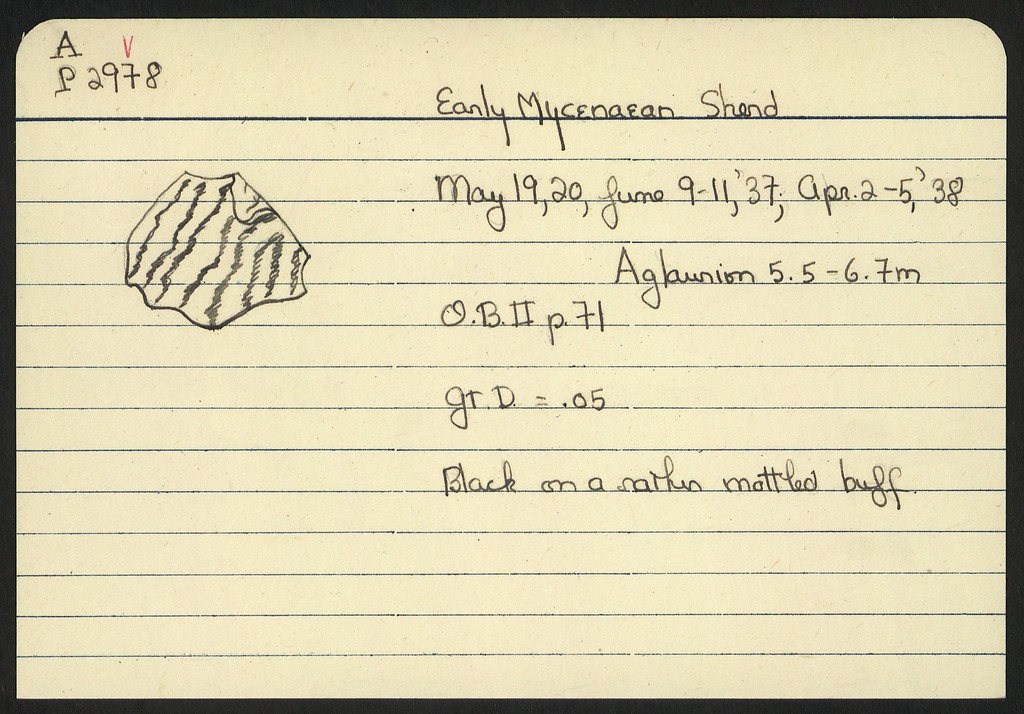 A
P 2978
Early Mycenaean Sherd
May 19, 20, June 9-11, '37; Apr. 2-5, '38
Aglaurion 5.5-6.7m
O.B. II p. 71
gr. D. = .05
Black on a rather mottled buff